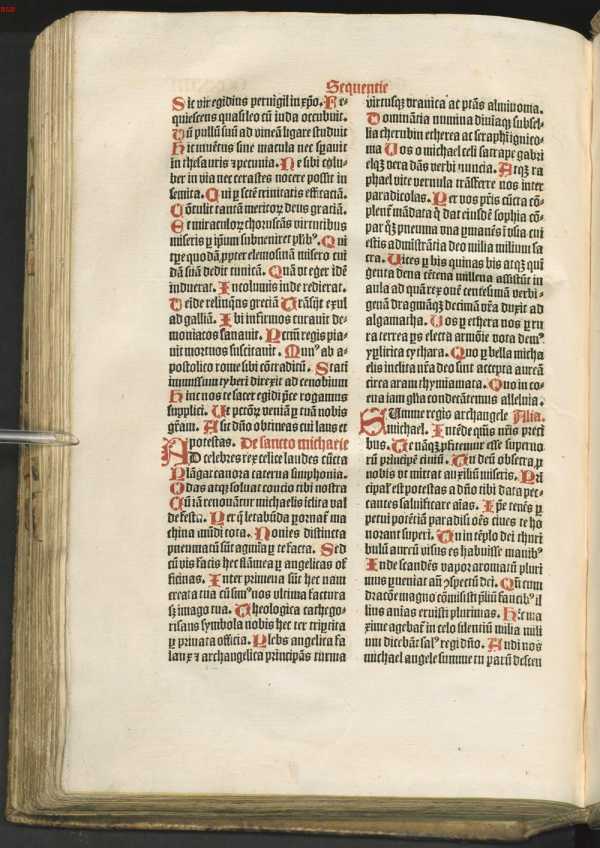 Sequentie
Sic vir egidius pervigil in xp̄o. Re-
quiescens quasi leo cū iuda occubuit.
Qui pullū suū ad vineā ligare studuit
Hic iunenis sine macula nec sꝑauit
in thesauris ⁊ pecunia. Ne sibi colu-
ber in via nec cerastes nocere possit in
semita. Qui ꝑ scē trinitatis efficaciā.
Cōtulit tantā meritoꝝ deus graciā.
Et miraculoꝝ choruscās virtutibus
miseris ꝑ ip̄um subueniret plib⁹. Qui
ꝓpter elemosinā misero cui
dā suā dedit tunicā. Quā vt eger idē
induerat. Incolumis inde redierat.
Deide relinquēs greciā Trāsijt exul
ad galliā. Ibi infirmos curauit de-
moniacos sanauit. Necnō regis pia-
uit mortuos suscitauit. Mun⁹ ab a-
postolico rome sibi cōtraditū. Statī
inmissum tyberi direxit ad cenobium
Hinc nos te sacer egidi p̄ce rogamus
supplici. Vt pctōꝝ veniā ꝑ tuā nobis
gr̄am. Asit dn̄o obtineas cui laus et
potestas. De sancto michaele
AD celebres rex celice laudes cūcta
Plāgat canora caterua simphonia.
Odas atqꝫ soluat concio tibi nostra
Cū iam renouātur michaelis iclita val
de festa. Per q̄ letabūda ꝑornat᷑ ma
china mūdi tota. Nonies distincta
pneumatū sūt agmīa ꝑ te facta. Sed
cū vis facis hec flāmea ꝑ angelicas of
ficinas. Inter primeua sūt hec nam
creata tua cū sim⁹ nos vltima factura
sꝫ imago tua. Theologica cathego-
risans symbola nobis hec ter tripitta
ꝑ priuata officia. Plebs angelica fa
lanx ⁊ archangelica principās turma
virtusqꝫ vranica ac ptās almivoma.
Dominātia numina diuīaqꝫ subsel-
lia cherubin etherea ac seraphī ignico-
ma Vos o michael celi satrape gabri
elqꝫ vera dās verbi nuncia. Atqꝫ ra
phael vite vernula trāsferre nos inter
paradicolas. Per vos pr̄is cūcta cō-
plent᷑ mādata q̄ dat eiusdē sophia cō-
par qꝫ pneuma vna ꝑmanēs ī vsia cui
estis admistrātia deo milia milium sa
cra. Vices ꝑ bis quinas bis atqꝫ quī
genta dena cētena millena assistūt in
aula ad quā rex ouē centesimā verbi-
genā dragmāqꝫ decimā vr̄a duxit ad
algamatha. Vos ꝑ ethera nos ꝑ ru
ra terrea ꝑs electa armōie vota dem⁹
yꝑlirica cythara. Quo ꝑ bella micha
elis inclita nr̄a deo sint accepta aureā
circa aram thymiamata. Quo in co-
eua iam gl̄ia condecātemus alleluia.
SUmme regis archangele Alia.
michael. Intēde qūs nr̄is preci
bus. Te nāqꝫ ꝓfitemur esse superno
rū principē ciuiū. Tu deū obsecra ꝑ
nobis vt mittat auxiliū miseris. Prī
cipal᷑ est potestas a dn̄o tibi data pec-
cantes saluificare aīas. Ip̄e tenes ꝑ
petui potētiā paradisi oēs ciues te ho
norant superi. Tu in tēplo dei thuri
bulū aureū visus es habuisse manib⁹
Inde scandēs vapor aromatū pluri
mus ꝑueniat an̄ ꝯspectū dei. Qn̄ cum
dracōe magno cōmisisti p̄liū faucib⁹ il
lius animas eruisti plurimas. Hīc ma
xime agebat᷑ in celo silentiū milia mili
um dicebāt sal⁹ regi dn̄o. Audi nos
michael angele summe tu parū descen